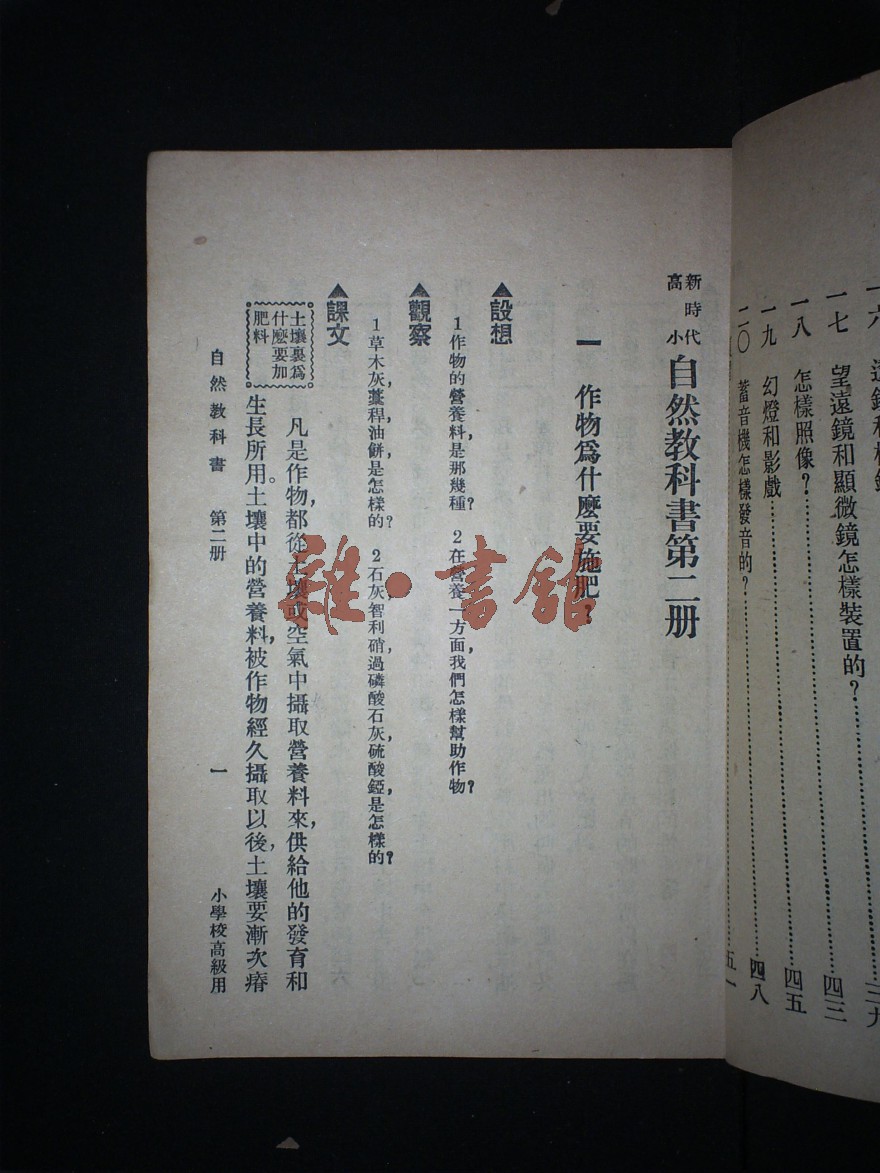 一七 望遠鏡和顯微鏡怎樣裝置的?……四三
一八 怎樣照像?……四五
一九 幻燈和影戲……四八
二〇 蓄音機怎樣發音的?……五一
新時代
高小
自然教科書第二册
一 作物爲什麼要施肥?
▲設想
1作物的營養料是那幾種? 2在營養一方面我們怎樣幫助作物?
▲觀察
1草木灰,藁稈,油餅,是怎樣的? 2石灰,智利硝,過磷酸石灰,硫酸錏,是怎樣的?
▲課文
凡是作物,都從土壤或空氣中攝取營養料來,供給他的發育和
土壤裏爲
什麼要加
肥料
生長所用。土壤中的營養料,被作物經久攝取以後,土壤要漸次瘠
自然教科書 第二册 一 小學校高級用
雜·書館